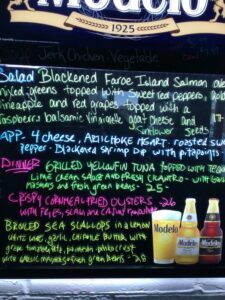 Modelo
1925
Jerk Chicken - Vegetable
Salad Blackened Faroe Island Salmon over
mixed greens topped with sweet red peppers, gold
pineapple and red grapes topped with a
raspberry balsamic vinaigrette goat cheese and
sunflower seeds
APP- 4 cheese, ARTICHOKE HEART, roasted sweet
pepper - Blackened shrimp Dip with pita points
DINNER GRILLED YELLOWFIN TUNA topped with
lime cream SAUCE AND FRESH CILANTRO - with
mashers and fresh green beans - 25 -
CRISPY CORNMEAL FRIED OYSTERS - 26
with fries, slaw and cajun
BROILED SEA SCALLOPS in a lemon
white wine, garlic, chipotle butter with
with garlic mashers + fresh green beans - 28
Modelo